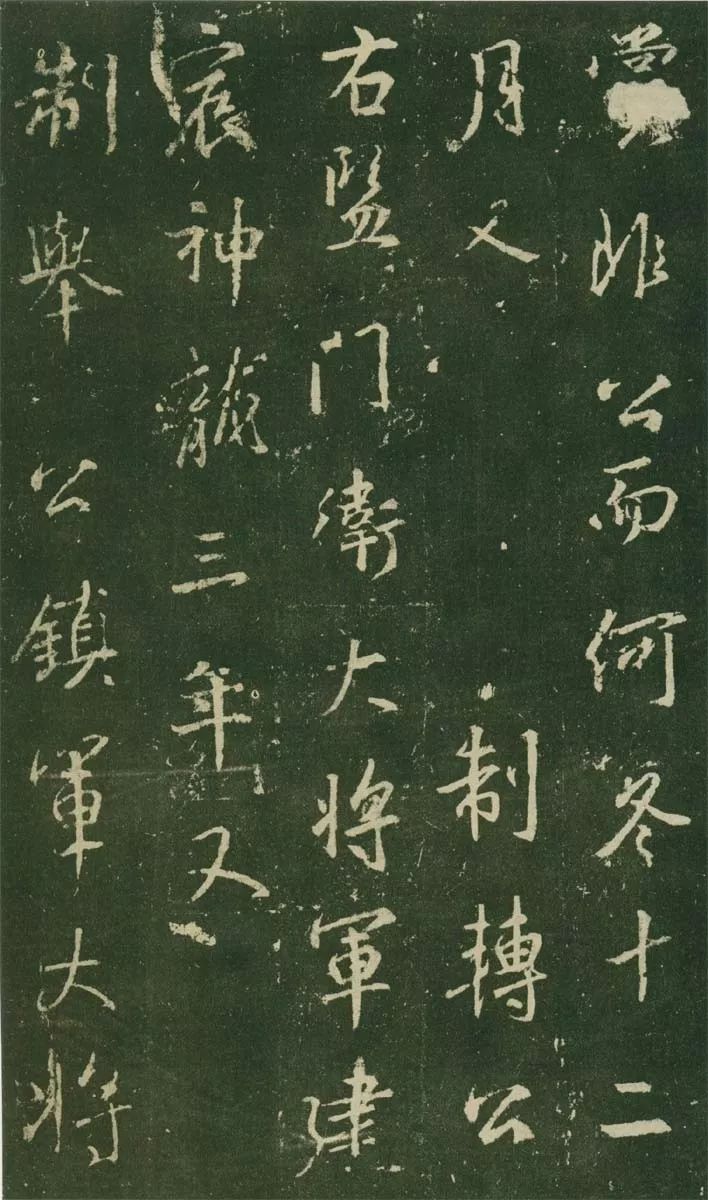 非公而何冬十二
月又制轉公
右監門衛大將軍建
宸神龍三年又
制舉公鎮軍大將